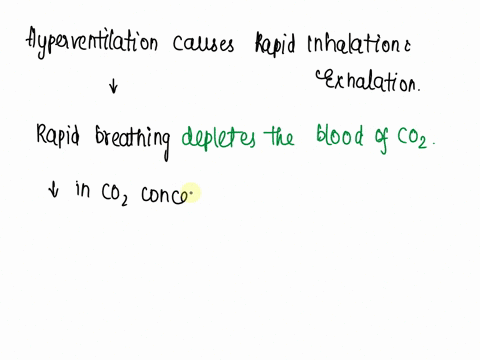 Hyperventilation causes Rapid inhalation &
Exhalation.
↓
Rapid breathing depletes the blood of CO₂.
↓ in CO₂ conce